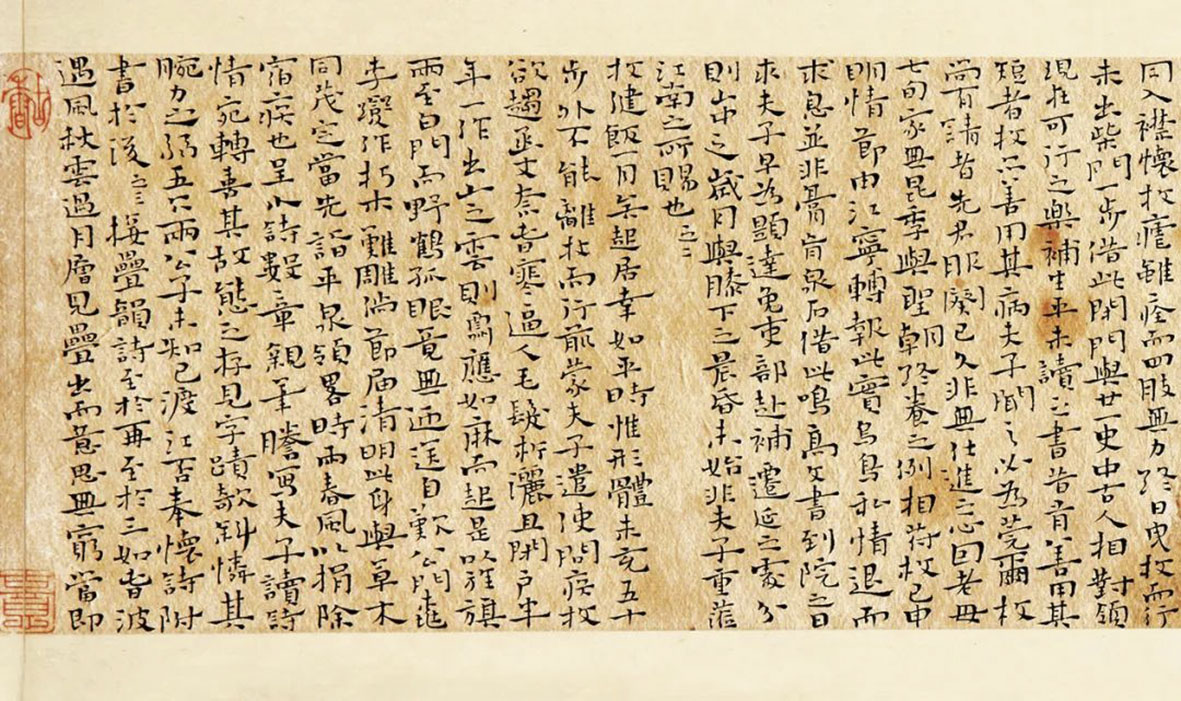 同入襟懷枚瘧雖痊而四肢無力終日曳杖而行
未出柴門一步借此閉門與廿一史中古人相對領
現在可行之樂補生平未讀之書昔者善用其
短者枚亦善用其病夫子聞之必為莞爾枚
尚有請者先君服闋已久非無仕進之心因老母
七旬家無昆季與聖朝終養之例相符枚已申
明情節由江寧轉報此實烏鳥私情退而
求息並非膏肓泉石借此鳴高文書到院之日
求夫子早為題達免吏部赴補遷延之處分
則山中之歲月與膝下之晨昏未始非夫子重蒞
江南之所賜也之二
枚健飯一月矣起居幸如平時惟形體未充五十
步外不能離杖而行前蒙夫子遣使問疾枚
欲趨函丈奈春寒逼人毛髮析灑且閉戶半
年一作出山之雲則應如麻而起是以旌旗
兩至白門而野鶴孤眠竟無迎送自歎公門桃
李變作朽木難雕倘節屆清明此身與草木
同茂定當先詣平泉領畧時雨春風以捐除
宿疾也呈小詩數章親筆謄寫夫子讀詩
情宛轉喜其故態之存見字蹟欹斜憐其
腕力之弱五六兩公子未知已渡江否奉懷詩附
書於後之三接疊韻詩至於再至於三如春波
遇風秋雲過月層見疊出而意思無窮當即